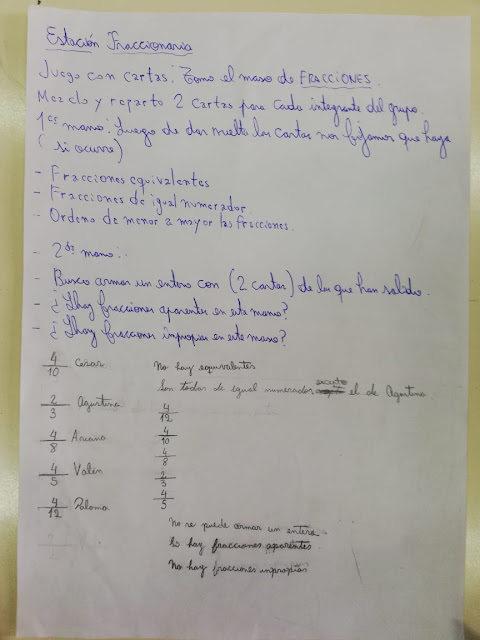 Estación Fraccionaria
Juego con cartas: Tomo el mazo de FRACCIONES.
Mezclo y reparto 2 cartas para cada integrante del grupo.
1era mano: Luego de dar vuelta las cartas nos fijamos que haya
(si ocurre)
- Fracciones equivalentes
- Fracciones de igual numerador
- Ordeno de menor a mayor las fracciones.
- 2da mano:
- Busco armar un entero con (2 cartas) de las que han salido.
- ¿Hay fracciones aparentes en esta mano?
- ¿Hay fracciones impropias en este mazo?
4/10 Cesar
2/3 Agustina
4/8
4/5 Valen
4/12 Paloma
No hay equivalentes
Son todas de igual numerador excepto el de Agustina
4/12
4/10
4/8
2/3
4/5
No se puede armar un entero
Si hay fracciones aparentes
No hay fracciones impropias